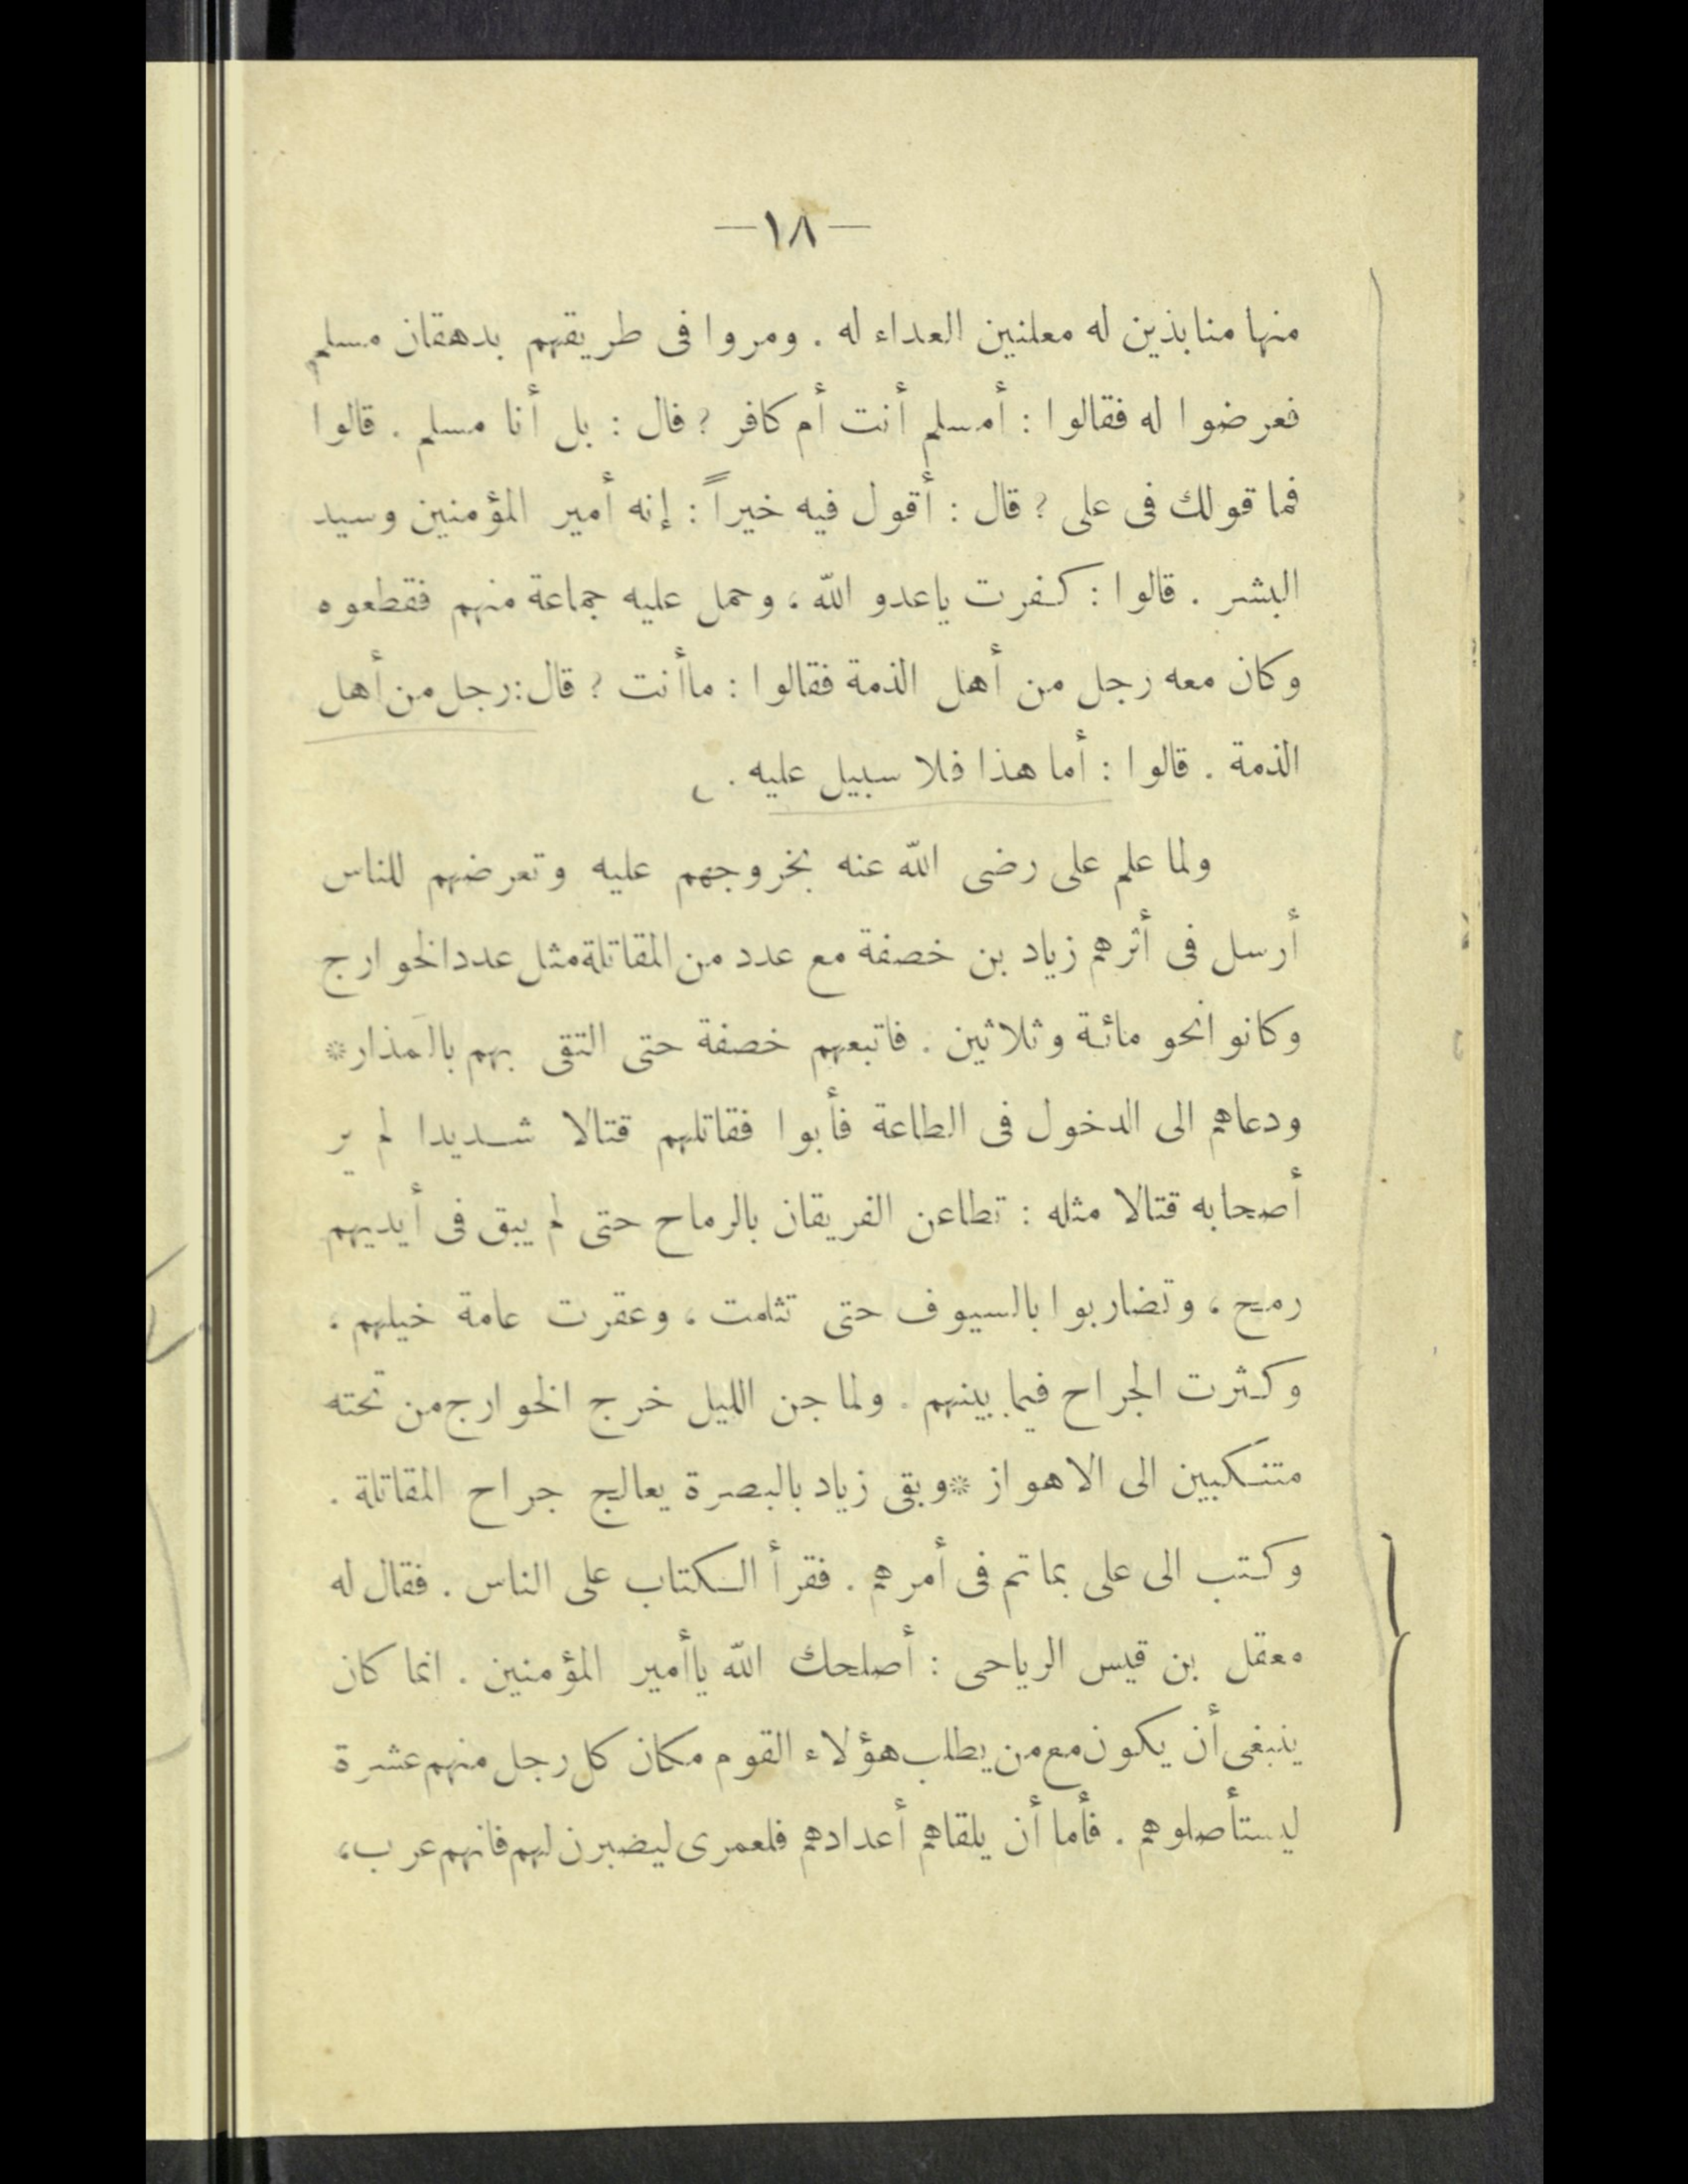 —١٨—
منها منابذين له معلنين العداء له . ومروا فى طريقهم بدهقان مسلم
فعرضوا له فقالوا : أمسلم أنت أم كافر ؟ فال : بل أنا مسلم . قالوا
فما قولك فى على ؟ قال : أقول فيه خيراً : إنه أمير المؤمنين وسيد
البشر . قالوا : كفرت ياعدو الله ، وحمل عليه جماعة منهم فقطعوه
وكان معه رجل من أهل الذمة فقالوا : ماأنت ؟ قال : رجل من أهل
الذمة . قالوا : أما هذا فلا سبيل عليه .
ولما علم على رضى الله عنه بخروجهم عليه وتعرضهم للناس
أرسل فى أثرهم زياد بن خصفة مع عدد من المقاتلة مثل عدد الخوارج
وكانوا نحو مائة وثلاثين . فاتبعهم خصفة حتى التقى بهم بالمَذار*
ودعاهم الى الدخول فى الطاعة فأبوا فقاتلهم قتالا شديدا لم ير
أصحابه قتالا مثله : تطاعن الفريقان بالرماح حتى لم يبق فى أيديهم
رمح ، وتضاربوا بالسيوف حتى تثلمت ، وعقرت عامة خيلهم ،
وكثرت الجراح فيما بينهم . ولما جن الليل خرج الخوارج من تحته
متنكبين الى الاهواز *وبقى زياد بالبصرة يعالج جراح المقاتلة .
وكتب الى على بما تم فى أمرهم . فقرأ الكتاب على الناس . فقال له
معقل بن قيس الرياحى : أصلحك الله ياأمير المؤمنين . انما كان
ينبغى أن يكون مع من يطلب هؤلاء القوم مكان كل رجل منهم عشرة
ليستأصلوهم . فأما أن يلقاهم أعدادهم فلعمرى ليضبرن لهم فانهم عرب ،